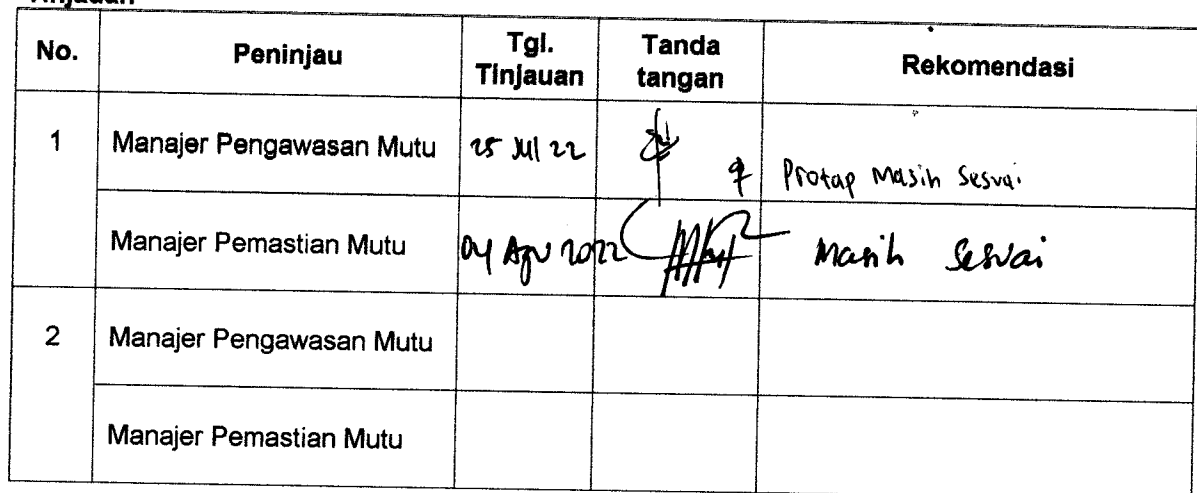 Tinjauan
No. Peninjau Tgl. Tinjauan Tanda tangan Rekomendasi
1 Manajer Pengawasan Mutu 25 Jul 22 Protap Masih Sesuai
Manajer Pemastian Mutu 04 Agu 2022 Masih Sesuai
2 Manajer Pengawasan Mutu
Manajer Pemastian Mutu